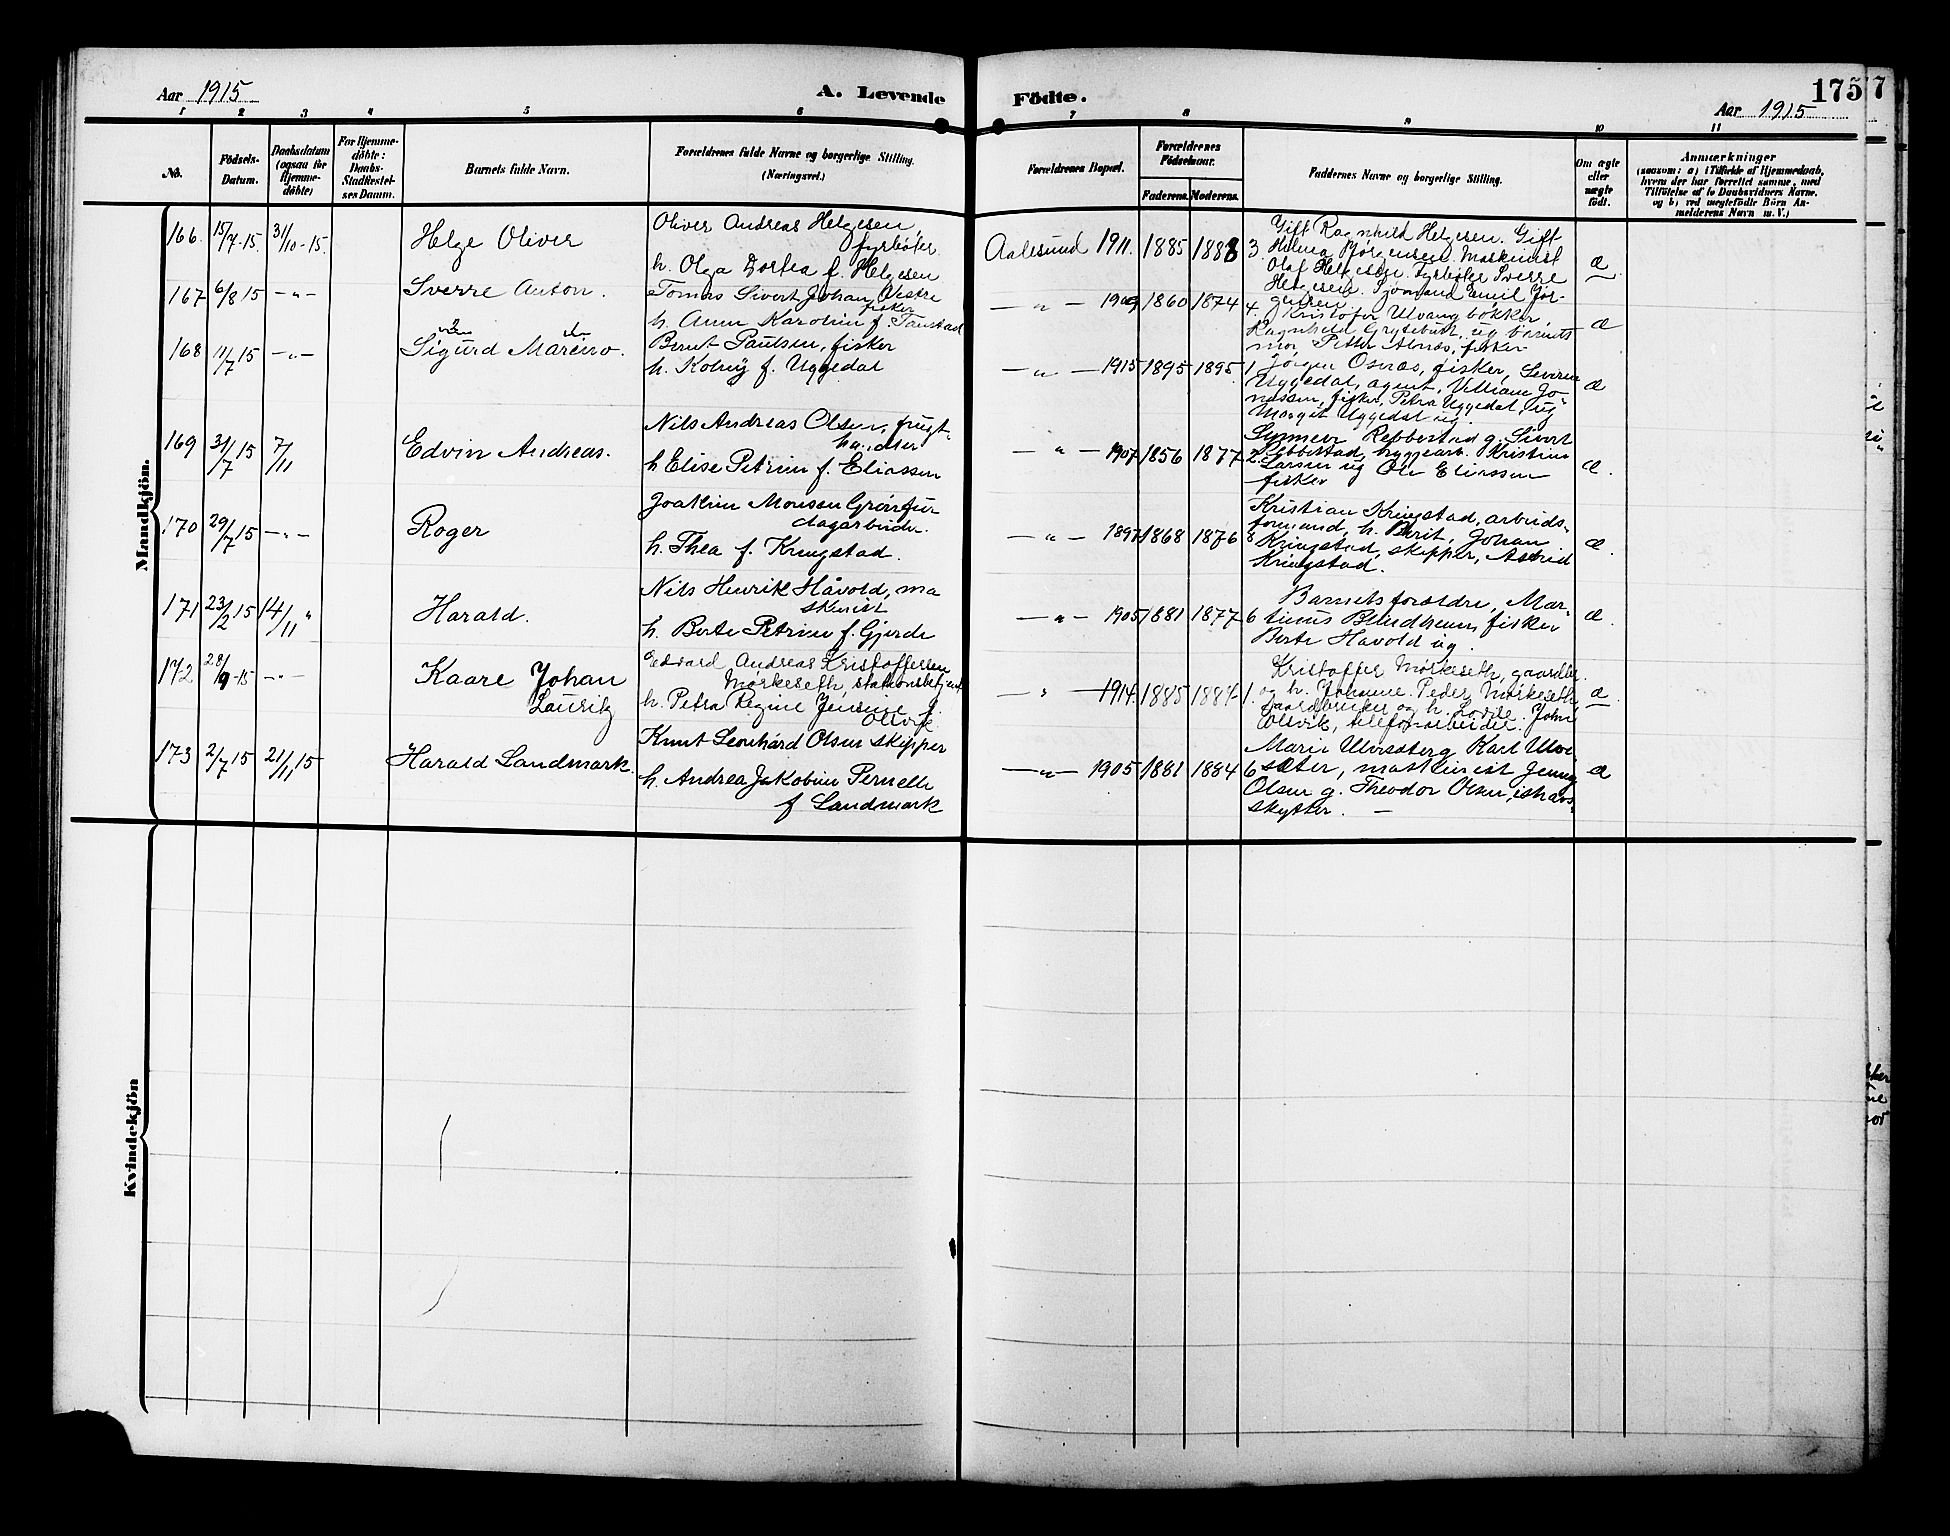 Aar 1915
A. Levende Födte.
175
Aar 1915
1 2 3 4 5 6 7 8 9 10 11
No.
Födsels-Datum.
Daabsdatum (ogsaa for Hjemme-döbte)
For Hjemme-döbte: Daabs-Stadfæstel-ses Datum.
Barnets fulde Navn.
Forældrenes fulde Navne og borgerlige Stilling. (Næringsvei.)
Forældrenes Bopæl.
Forældrenes Födselsaar.
Faderens. Moderens.
Faddernes Navne og borgerlige Stilling.
Om ægte eller uægte födt.
Anmærkninger
(saasom: a) i Tilfælde af Hjemmedaab,
hvem der har forrettet samme, med
Tilföielse af to Daabsvidners Navne.
og b) ved uægtefödte Börn An-
melderens Navn m. V.)
Mandkjön.
166. 15/7-15 31/10-15. Helge Oliver
Oliver Andreas Helgesen,
fyrbøter.
h. Olga Dortea f. Helgesen
Aalesund 1911. 1885 1888 3
Gift Ragnhild Helgesen. Gift
Helena Bjørgensen. Maskinist
Olaf Helgesen. Fyrbøter Sverre
Helgesen. Sjømand Emil Jør-
gensen.
æ
167 6/8 15 -"- Sverre Anton.
Tomas Sivert Johan Vestre
fisker
h. Anna Karoline f. Taustad
-"- 1909 1860 1874 4.
Kristofer Ulvang bøkker
Ragnhild Grytebust, ug barnets
mor Petter Alnæs, fisker
æ
168 11/7 15 -"- Sigurd Mareno.
Bernt Paulsen, fisker
h. Kolray f. Uggedal
-"- 1915 1895 1895 1
Jørgen Osnæs, fisker, Severin
Uggedal, agent, Villiam Jo-
nassen, fisker, Petra Uggedal, ug
Margit Uggedal ug.
æ
169 31/7 15 7/11 Edvin Andreas.
Nils Andreas Olsen, frugt-
handler
h Elise Petrine f. Eliassen
-"- 1907 1856 1877 2
Synnøve Rebbestad g. Sivert
Rebbestad, bryggearb. Kristine
Larsen ug Ole Eliassen
fisker
æ.
170 29/7 15 -"- Roger
Joakim Monsen Grønfur
dagarbeider.
h. Thea f. Kringstad.
-"- 1897 1868 1876 8
Kristian Kringstad, arbeids-
formand, h. Berit, Johan
Kringstad, skipper, Astrid
Kringstad.
æ.
171 23/2 15 14/11 " Harald.
Nils Henrik Håvold, ma
skinist
h. Berte Petrine f. Gjerde
-"- 1905 1881 1877 6
Barnets forældre, Mar-
tinus Blindheim, fisker
Berte Håvold ug.
æ.
172 28/9-15 -"- Kaare Johan
Laurik
Edvard Andreas Kristoffersen
Mørkeseth, stationsbetjent
h. Petra Regine Jensine f.
Olsvik
-"- 1914. 1885 1884 1.
Kristoffer Mørkeseth, gaardbr.
og h. Johanne. Peder Mørkeseth,
gaardbruker og h. Lovise. John
Olsvik, telefonarbeider.
æ.
173 2/7 15 21/11 15 Harald Landmark.
Knut Leonhard Olsen skipper
h. Andrea Jakobine Pernelle
f Landmark
-"- 1905 1881 1884 6
Marie Ulvesæter g Karl Ulve
sæter, maskinist Jenny
Olsen g. Theodor Olsen, ishavs-
skytter. -
æ
Kvindekjön